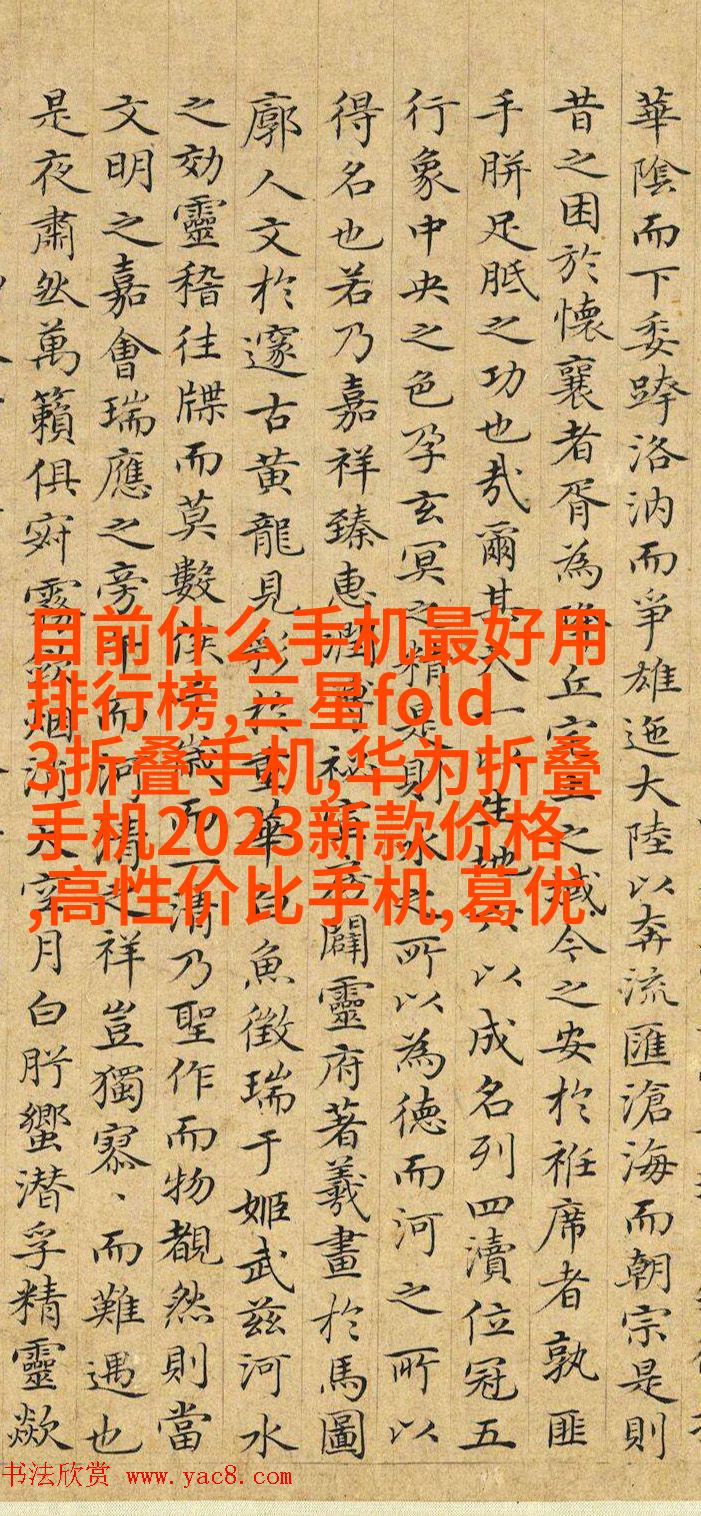 華陰而下委洛汭而爭雄迤大陸以奔流匯滄海而朝宗是則
昔之困於懷襄者胥為降丘宅土之域今之安於袵席者孰匪
手胼足胝之功也哉爾其天一以生地六以成名列四瀆位冠五
行象中央之色孕玄冥之精是則水之所以為德而河之所以
得名也若乃嘉祥臻惠闢靈府著羲畫於馬圖
廓人文於邃古黃龍見彩於重華白魚徵瑞于姬武茲河水
之効靈稽往牒而莫數俟千歲而一清乃聖作而物覩然則當
文明之嘉會瑞應之旁午而河清之祥豈獨寥、而難遇也
是夜肅然萬籟俱寂霧斂烟消水空月白肸蠁潜孚精靈歘
目前什么手机最好用
排行榜,三星fold
3折叠手机,华为折叠
手机2023新款价格
,高性价比手机,葛优
书法欣赏 www.yac8.com